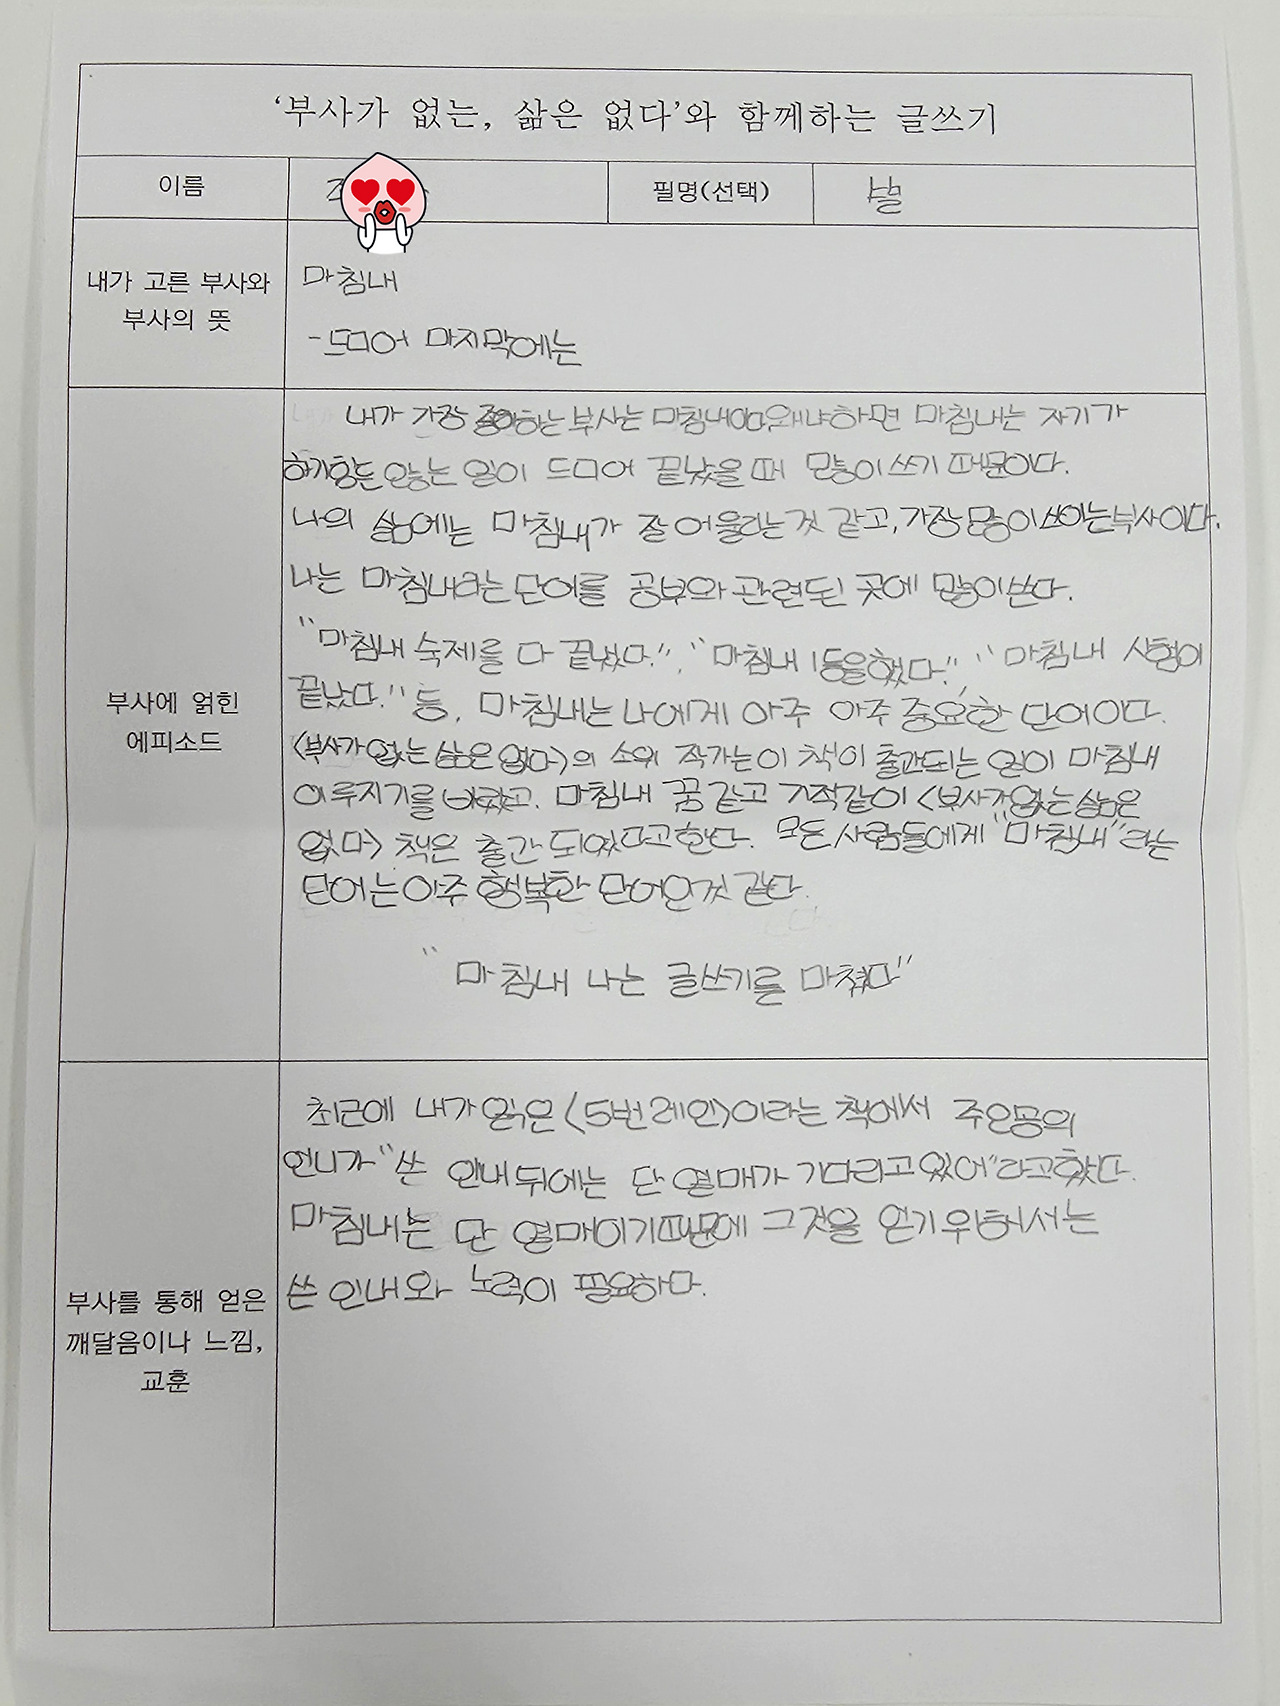 ‘부사가 없는, 삶은 없다’와 함께하는 글쓰기
이름
필명(선택) 별
내가 고른 부사와
부사의 뜻
마침내
- 드디어 마지막에는
부사에 얽힌
에피소드
내가 가장 좋아하는 부사는 마침내이다. 왜냐하면 마침내는 자기가
하기 힘든 않는 일이 드디어 끝났을 때 많이 쓰기 때문이다.
나의 삶에는 마침내가 잘 어울리는 것 같고, 가장 많이 쓰이는 부사이다.
나는 마침내라는 단어를 공부와 관련된 곳에 많이 쓴다.
“마침내 숙제를 다 끝냈다.”, “마침내 1등을 했다.”, “마침내 시험이
끝났다.” 등, 마침내는 나에게 아주 아주 중요한 단어이다.
<부사가 없는 삶은 없다>의 소위 작가는 이 책이 출간되는 일이 마침내
이루지기를 바랬고, 마침내 꿈 같고 기적같이 <부사가 없는 삶은
없다> 책은 출간 되었다고 한다. 모든 사람들에게 “마침내”라는
단어는 아주 행복한 단어인 것 같다.
“마침내 나는 글쓰기를 마쳤다”
부사를 통해 얻은
깨달음이나 느낌,
교훈
최근에 내가 읽은 <5번 레인>이라는 책에서 주인공의
언니가 “쓴 인내 뒤에는 단 열매가 기다리고 있어”라고 했다.
마침내는 단 열매이기 때문에 그것을 얻기 위해서는
쓴 인내와 노력이 필요하다.